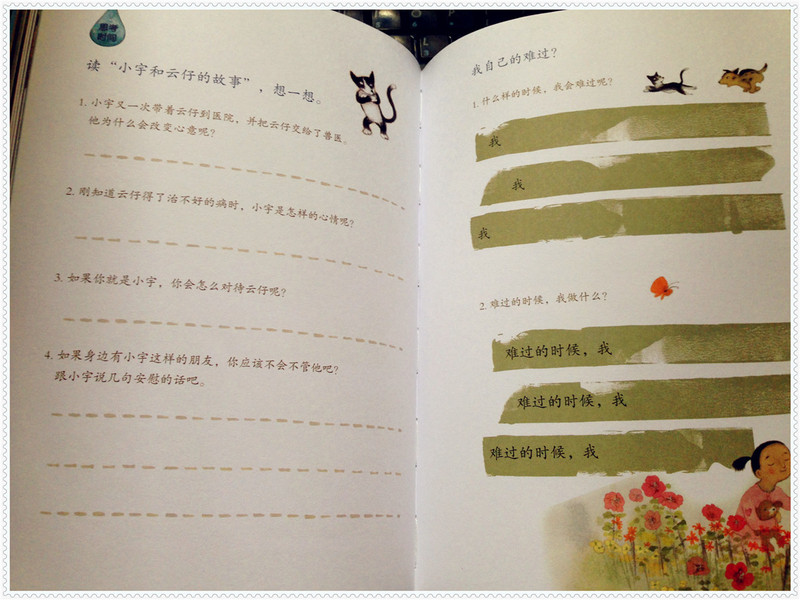 思考
时间
读“小宇和云仔的故事”，想一想。
1. 小宇又一次带着云仔到医院，并把云仔交给了兽医。
他为什么会改变心意呢？
2. 刚知道云仔得了治不好的病时，小宇是怎样的心情呢？
3. 如果你就是小宇，你会怎么对待云仔呢？
4. 如果身边有小宇这样的朋友，你应该不会不管他吧？
跟小宇说几句安慰的话吧。
我自己的难过？
1. 什么样的时候，我会难过呢？
我
我
我
2. 难过的时候，我做什么？
难过的时候，我
难过的时候，我
难过的时候，我